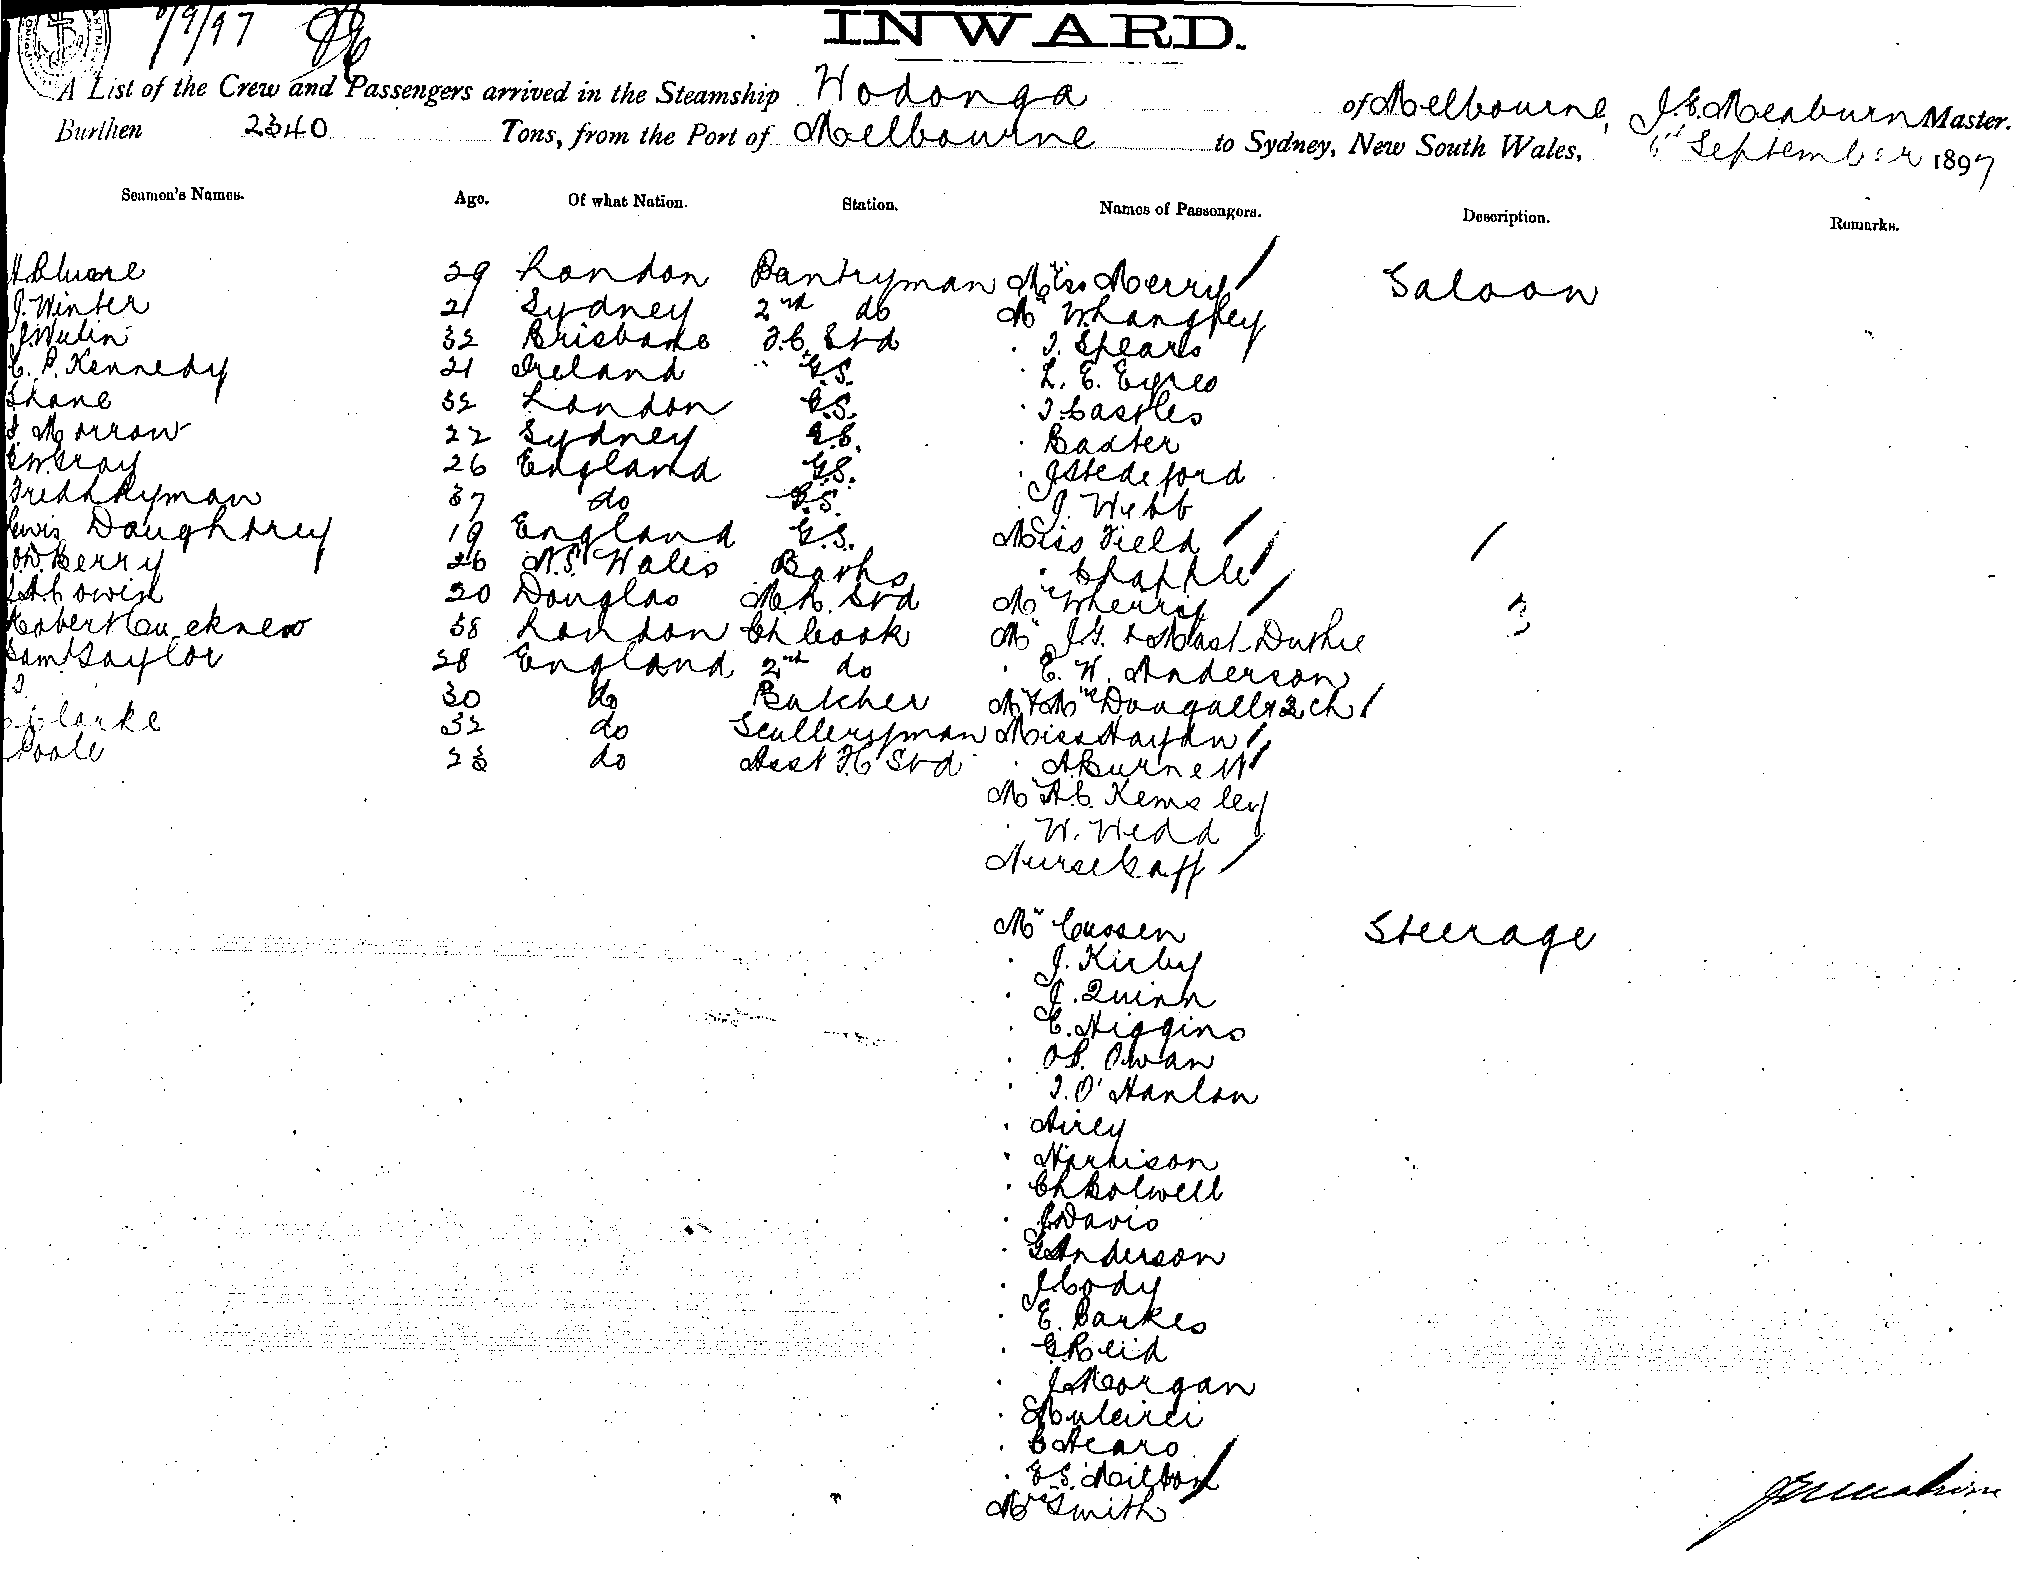 1/9/97
INWARD.
A List of the Crew and Passengers arrived in the Steamship Wodonga of Melbourne, J. E. Meaburn Master.
Burthen 2340 Tons, from the Port of Melbourne to Sydney, New South Wales, 1st September 1897
Seamen's Names. Age. Of what Nation. Station. Names of Passengers. Description. Remarks.
29 London Pantryman Miss Merry Saloon
J. Winter 21 Sydney 2nd do Mr W. Langley
32 Brisbane F.C. Std J. Spears
C. P. Kennedy 21 Ireland " G.S. L. E. Eyres
Shane 32 London G.S. J Castles
Morrow 22 Sydney G.S. Baxter
Gray 26 England G.S. J Stedeford
Fredk Ryman 37 do G.S. J. Webb
Lewis Daughtrey 19 England G.S. Miss Field
Berry 26 N.S. Wales Barks Chapple
Cowin 20 Douglas M.R. Std Mrs Wherry
Robert Cucknew 38 London Ch Cook Mr J.G. & Mast Duthie
Saml Taylor 28 England 2nd do E. W. Anderson
30 do Butcher Mr & Mrs Dougall & 2 ch
Clarke 32 do Sculleryman Miss Haydn
Poole 23 do Asst F.C. Std A Burnett
Mr A.C. Kemsley
W. Wedd
Nurse Gaff
Mr Cussen Steerage
J. Kirby
J. Quinn
C. Higgins
O.P. Owan
J. O'Hanlon
Airey
Harrison
Ch Bolwell
J Davis
G Anderson
J Cody
E. Parkes
G Reid
J Morgan
C Hears
E. S. Milton
Mrs Smith